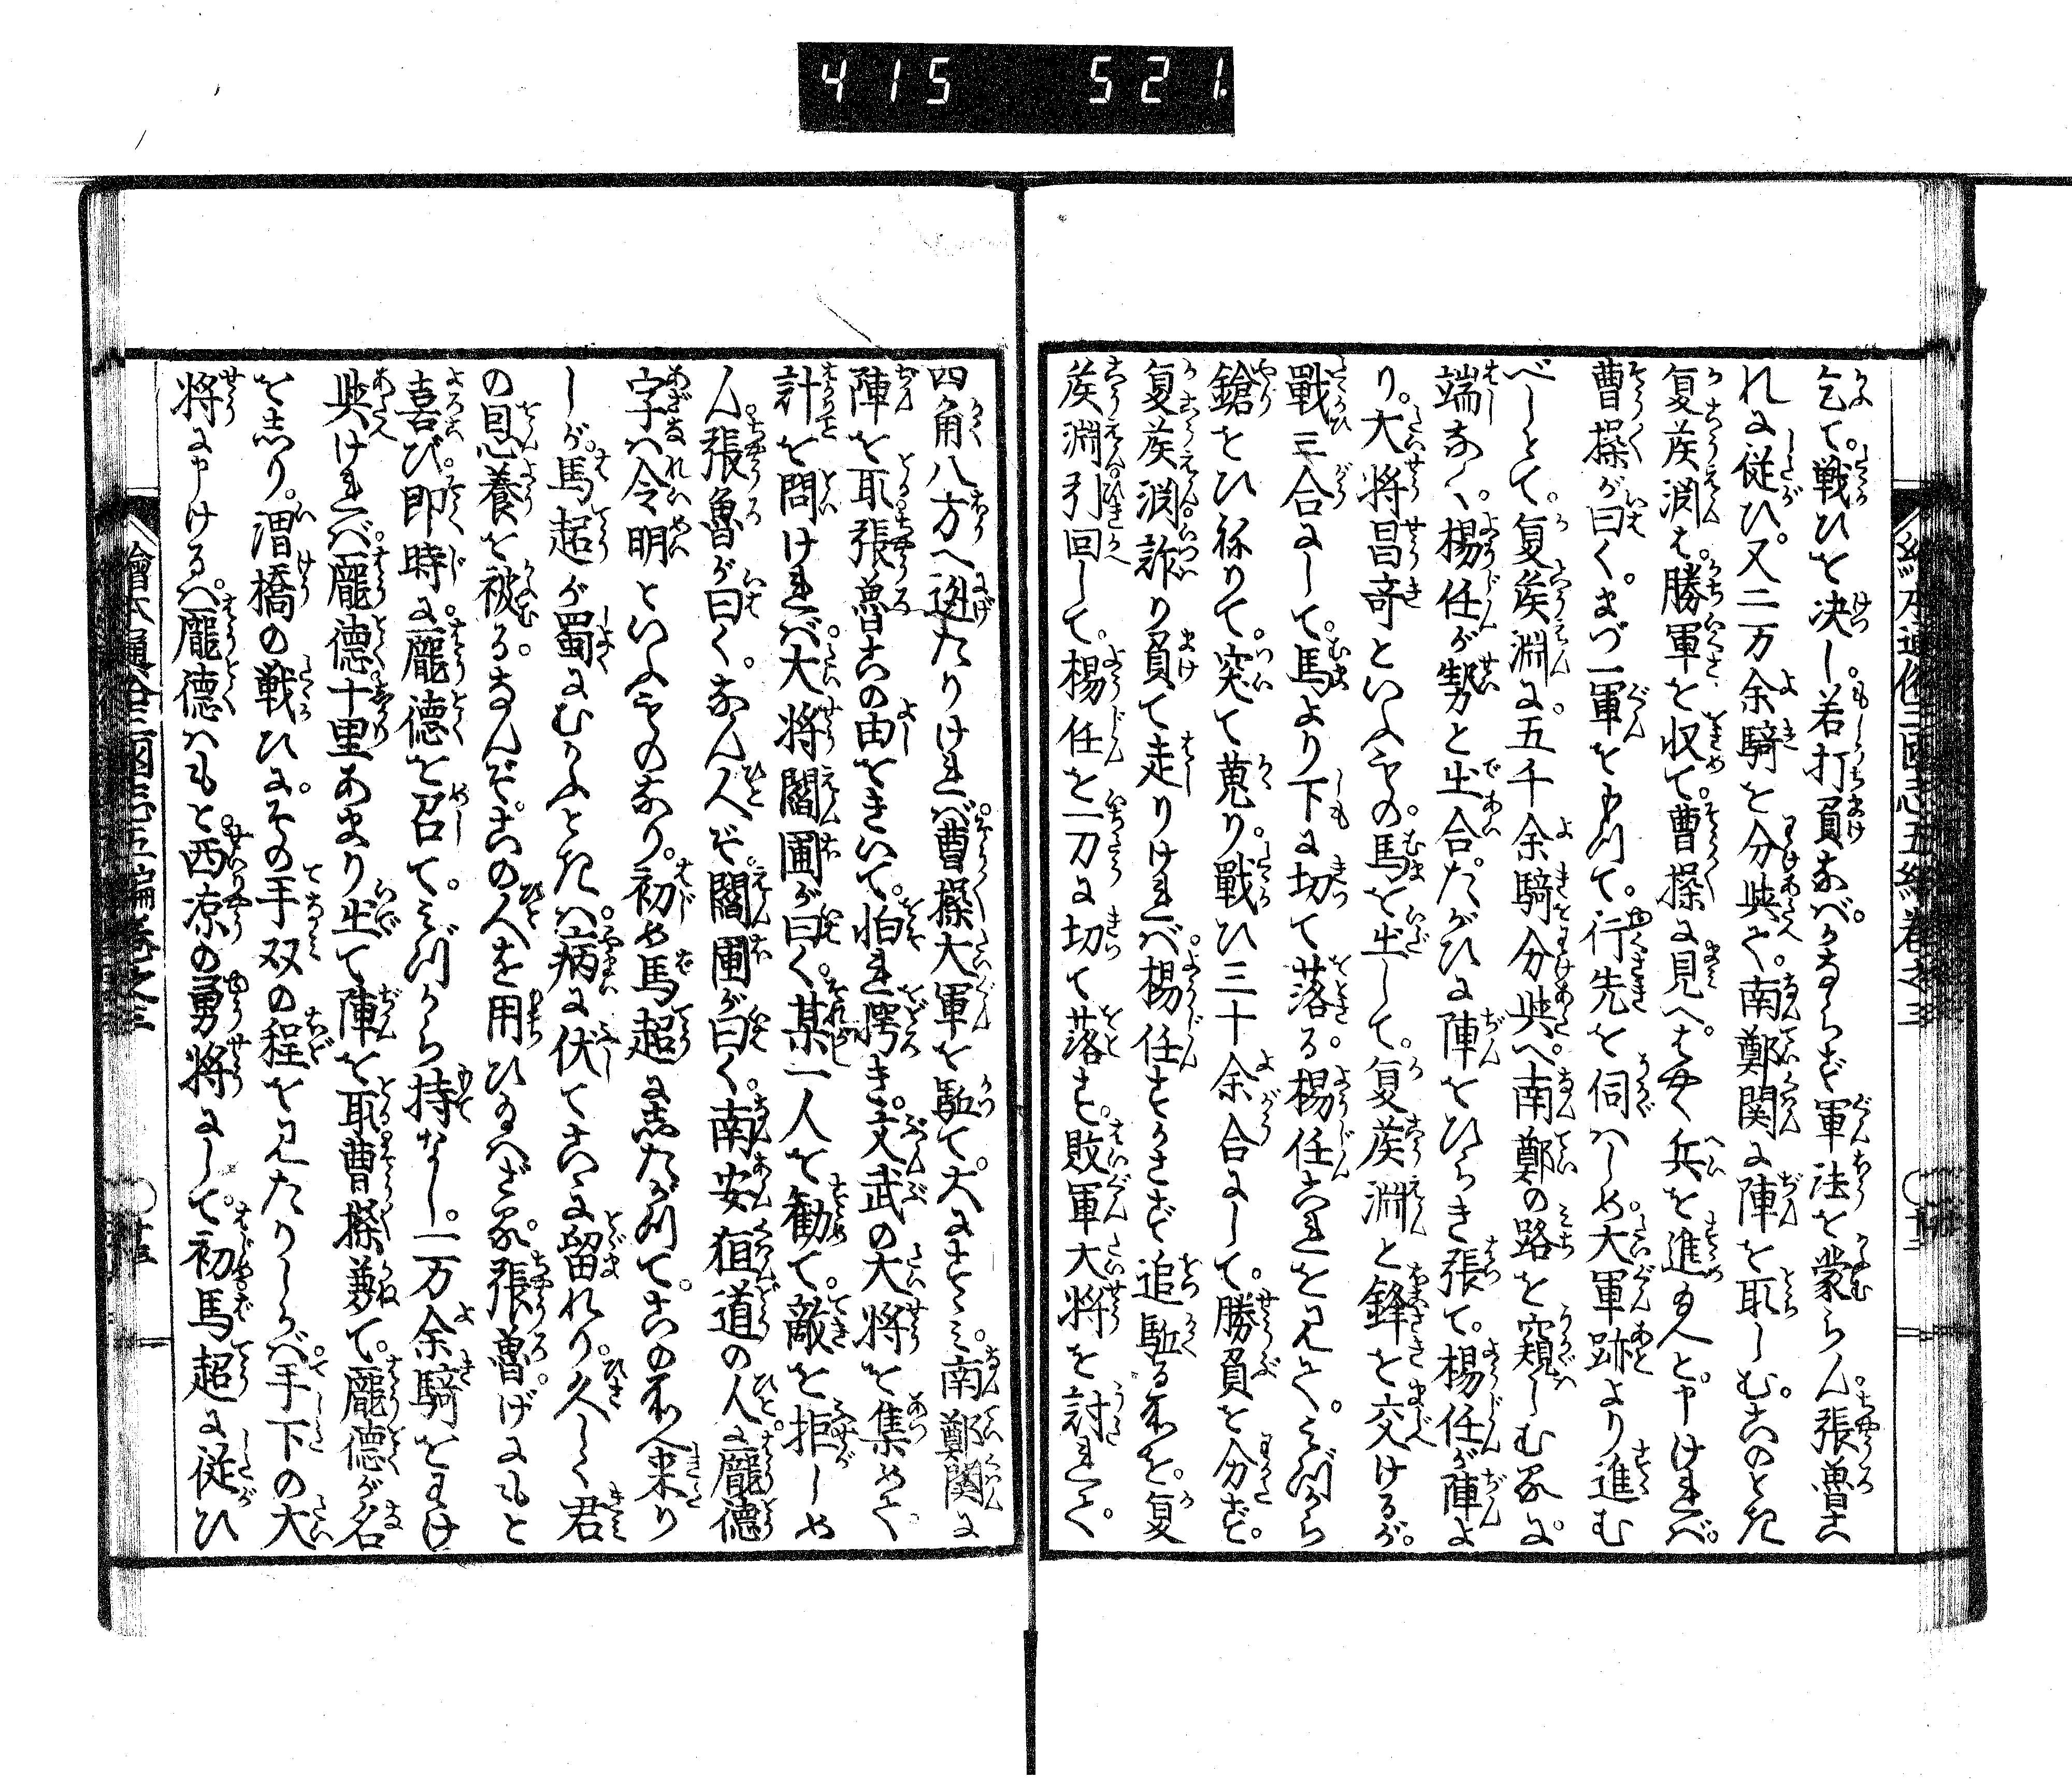 415 521.
乞て。戦ひを决し。若打負なバ。かならず軍法を蒙らん。張魯こ
れに従ひ。又二万余騎を分與て。南鄭関に陣を取しむ。このとき
夏侯淵ハ。勝軍を収て。曹操に見へ。はやく兵を進給へと申けれバ。
曹操が曰く。まづ一軍を
て。行先を伺ハしめ。大軍跡より進む
べしとて。夏侯淵に。五千余騎分與へ。南鄭の路を窺しむる所に。
端なく。楊任が勢と出合。たがひに陣をひらき張て。楊任が陣よ
り。大将昌竒といふもの。馬を出して。夏侯淵と鋒を交けるが。
戰三合にして。馬より下に切て落る。楊任これを見て。みづから
鎗をひ祢りて。突て蒐り。戰ひ三十余合にして。勝負を分ず。
夏侯渕詐り負て走りけれバ。楊任すかさず追駈る所を。夏
侯淵引回して。楊任を一刀に切て落す。敗軍大将を討れて。
四角八方へ迯たりけれバ。曹操大軍を駈て。大にすゝミ。南鄭関に
陣を取。張魯この由をきいて。怕れ愕き。文武の大将を集めて。
計を問けれバ。大将閻圃が曰く。某一人を勧て。敵を拒しめ
ん。張魯が曰く。なん人ぞ。閻圃が曰く。南安狟道の人に。龐德
字ハ令明といふものあり。初め馬超にしたがつて。この所へ来り
しが。馬超が蜀にむかふときハ。病に伏てこゝに留れり。久しく君
の恩養を被る。なんぞ。この人を用ひ給ハざる。張魯。げにもと
喜び。即時に。龐德を召て。みづから持なし。一万余騎をわけ
與けれバ。龐德十里あまり出て陣を取。曹操兼て。龐德が名
をしり。渭橋の戰ひに。その手双の程を見たりしかバ。手下の大
将に申けるハ。龐德ハもと。西凉の勇将にして。初馬超に従ひ